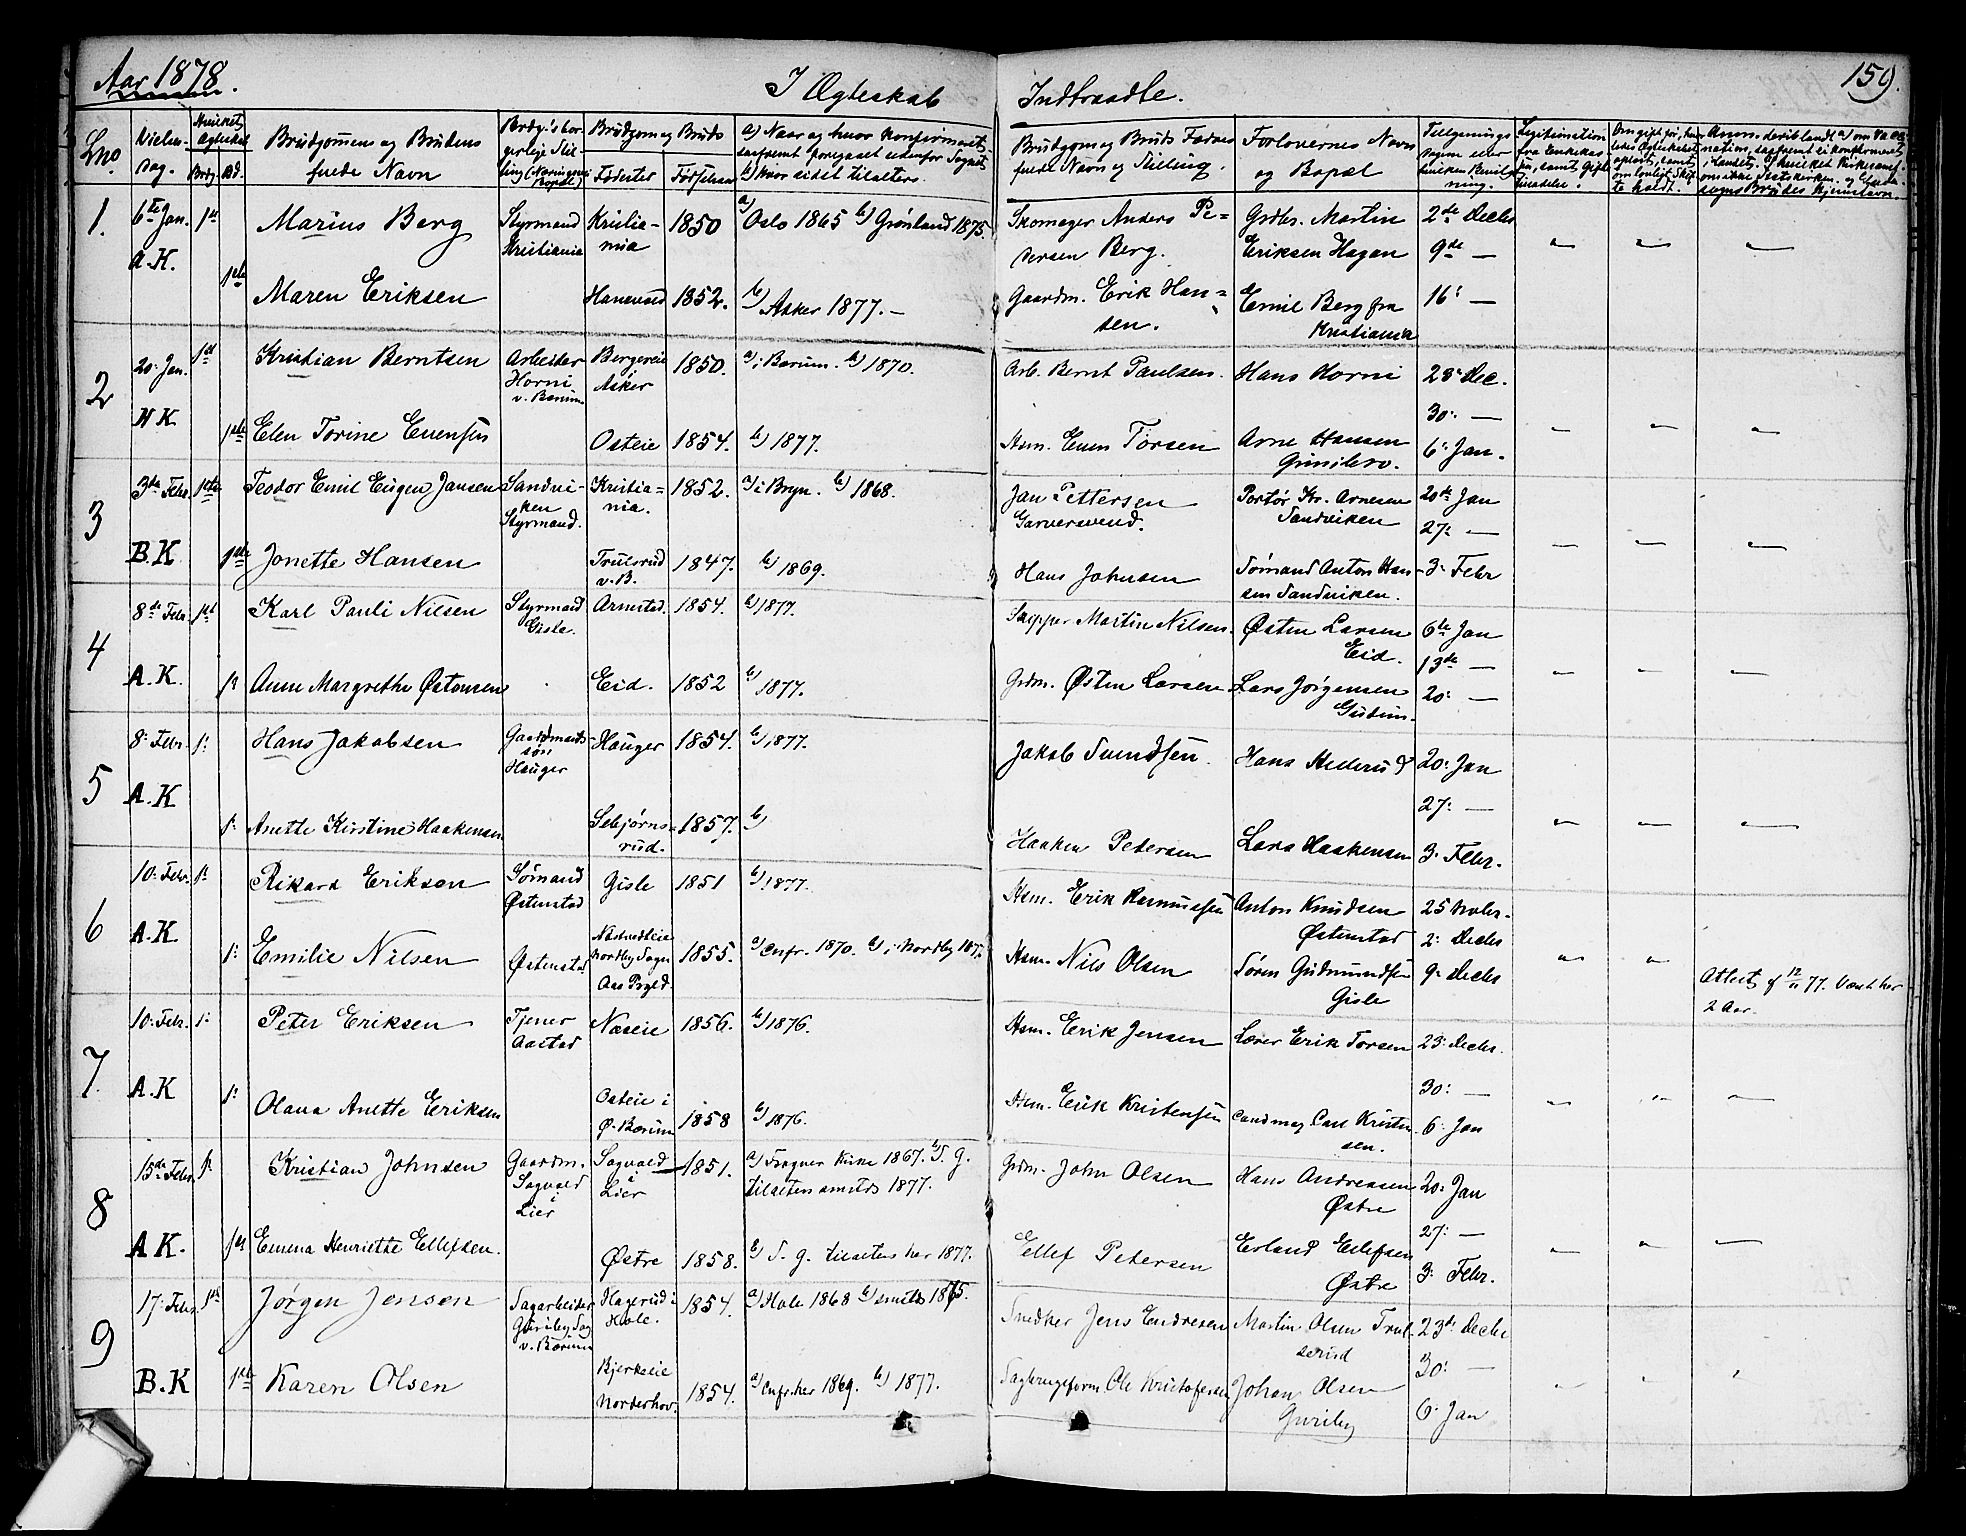 Aar 1878.
I Ægteskab Indtraadte.
159.
Lno
Vielses-
dag.
Hvilket
Ægteskab
Brdg. Bd.
Brudgommens og Brudens
fulde Navn
Brudgom og Bruds
Fødested
Fødselsaar
a) Naar og hvor konfirmeret,
saafremt foregaaet udenfor Sognet
b) hvor sidst tilalters.
Brudgom og Bruds Fædres
fulde Navn og Stilling.
Forlovernes Navn
og Bopæl
1.
6te Jan.
A.K.
1st
Marius Berg
Styrmand
Kristiania
Kristia-
nia
1850
a) Oslo 1865 b) Grønland 1875.
Skomager Anders Pe-
dersen Berg.
Grdbr. Martin
Eriksen Hagan
2de Decbr
9de —
1ste
Maren Eriksen
1852.
b) Asker 1877. —
Gaardm. Erik Han-
sen.
Emil Berg fra
Kristiania
16: —
2
20: Jan.
1st
Kristian Berntsen
Arbeider
Horni
v. Bærum
Asker
1850.
a) i Bærum. b) 1870.
Arb. Bernt Paulsen.
Hans Horni
23: Dec.
30: —
1ste
Elen Torine Evensen
Osteie
1854.
b) 1877.
Hsm. Even Torsen
Arne Hansen
6: Jan.
3
3de Febr.
1ste
Teodor Emil Eugen Jansen
Sandvi-
ken
Styrmand.
Kristia-
nia.
1852.
a) i Bryn. b) 1868.
Jan Pettersen
Garversvend.
Portør Kr. Arnesen
Sandviken
20de Jan
27: —
B.K.
1ste
Jonette Hansen
Trulsrud
v. B.
1847.
b) 1869.
Hans Johnsen
Sømand Anton Han-
sen Sandviken.
3: Febr
4
8de Febr.
1st
Karl Pauli Nilsen
Styrmand
Gisle.
Arnestad.
1854.
b) 1877.
Skipper Martin Nilsen.
Østen Larsen
Eid.
6te Jan
13de —
A.K.
1:
Anne Margrethe Østensen
Eid.
1852
b) 1877.
Grdm. Østen Larsen
Lars Jørgensen
20: —
5
8: Febr.
1:
Hans Jakobsen
Gaardmands
søn
Hauger
Hauger
1854.
b) 1877.
Jakob Svendsen.
Hans Hederud
20: Jan
27: —
A.K
1:
Anette Kirstine Haakensen
Sebjørns-
rud.
1857.
b)
Haaken Petersen
Lars Haakensen
3: Febr.
6
10: Febr.
1:
Rikard Eriksen
Sømand
Østenstad
Gisle
1851
b) 1877.
Hsm. Erik Rasmussen
Anton Knudsen
Østenstad
25 Novbr.
2: Decbr
A.K.
1:
Emilie Nilsen
Østenstad
Nordby Sogn
Aas Prgld.
1855.
a) Cnfr. 1870. b) i Nordby 187
Hsm. Nils Olsen
Søren Gudmundsen
Gisle
9: Decbr
Attest af 12/11 77. Været her
2 Aar.
7.
10: Febr.
1:
Peter Eriksen
Tjener
Aastad
Næseie
1856.
b) 1876.
Hsm. Erik Jensen
Lærer Erik Torsen
23: Decbr.
30: —
A.K
1:
Olava Anette Eriksen
Osteie i
Ø. Bærum
1858
b) 1876.
Hsm. Erik Kristensen
Landmag Carl Kristen-
sen.
6: Jan
8
15de Febr.
1:
Kristian Johnsen
Gaardm.
Sogvold
i
Lier
Sogvold
i
Lier
1851.
a) Frogner Kirke 1867. b) S. G.
tilalters smsts 1877.
Grdm. John Olsen
Hans Andreasen
Østre
20: Jan
27: —
A K.
1st
Emma Henriette Ellefsen.
Østre
1858.
b) S. G. tilalters her 1877.
Ellef Petersen
Erland Ellefsen
Østre
3: Febr.
9
17: Febr.
1st
Jørgen Jensen
Sagarbeider
Guriby Sag
v. Bærum
Hagerud i
Hole.
1854.
a) Hole 1868 b) smsts 1875.
Snedker Jens Endresen
Martin Olsen Trul-
serud
23de Decbr
30: —
B.K
1ste
Karen Olsen
Bjerkeeie
Norderhov.
1854.
a) Cnfr. her 1869. b) 1877.
Sagbrugsform. Ole Kristofersen
Johan Olsen
Guriby
6: Jan